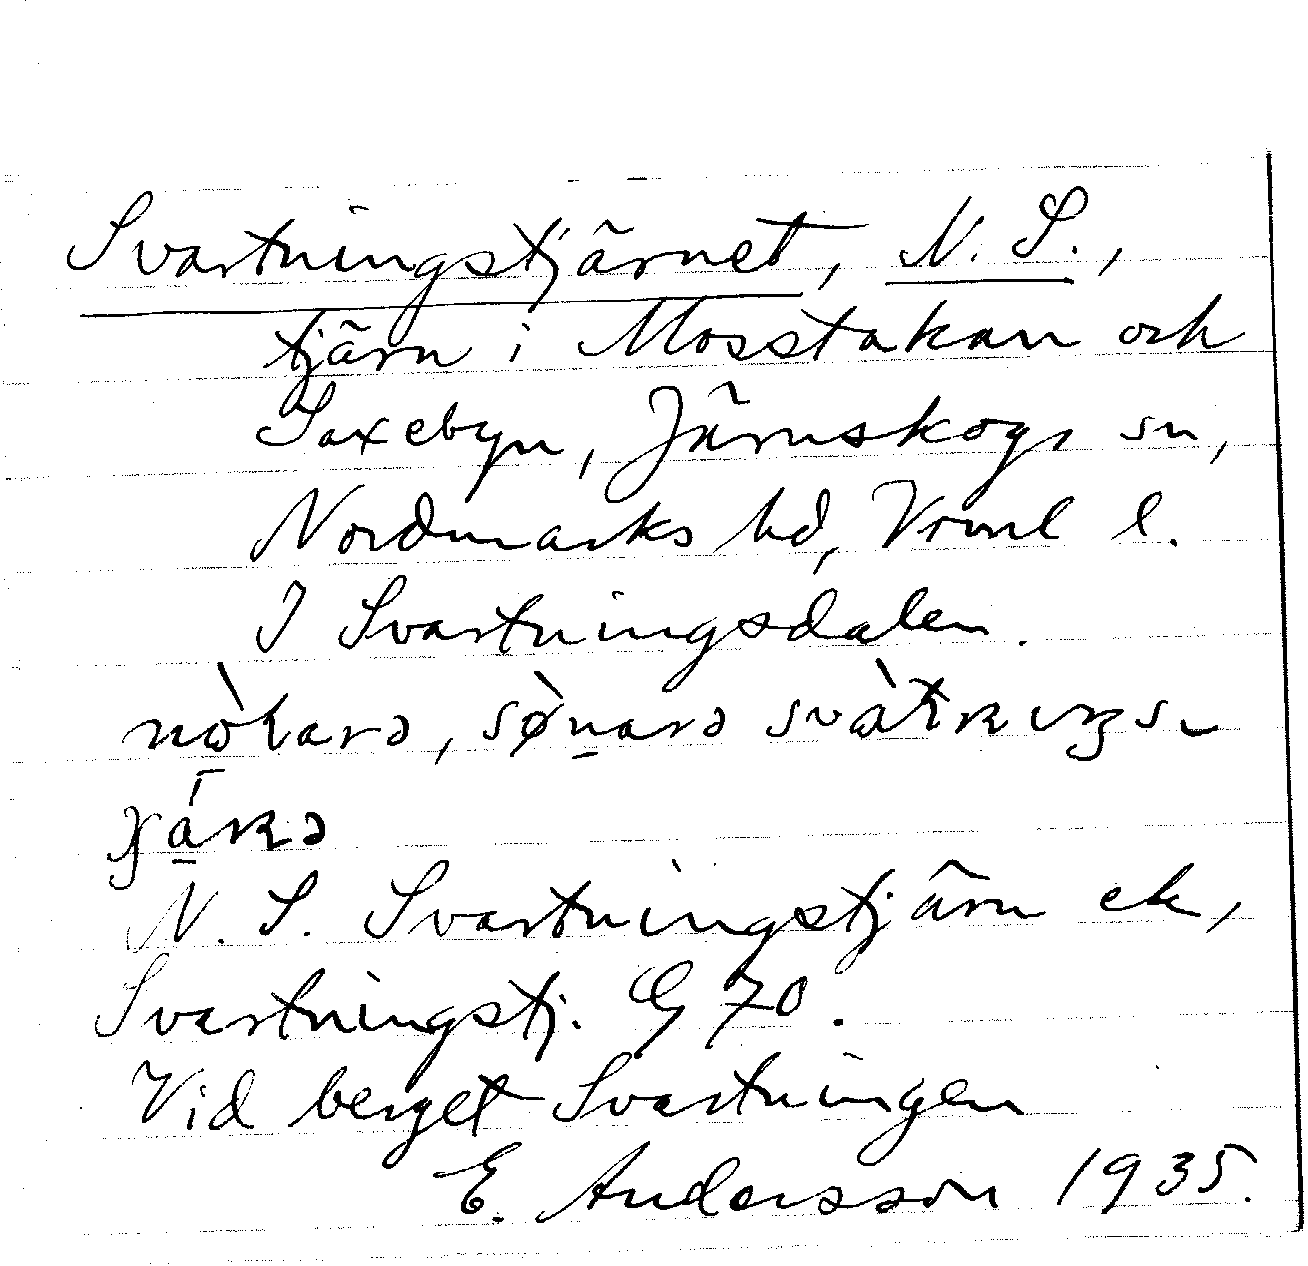 Svartningstjärnet, N. S.,
tjärn i Mosstakan och
Taxebyn, Järnskogs sn,
Nordmarks hd, Vrml l.
I Svartningsdalen.
N. S. Svartningstjärn ek,
Svartningstj. G 70.
Vid berget Svartningen
E. Andersson 1935.